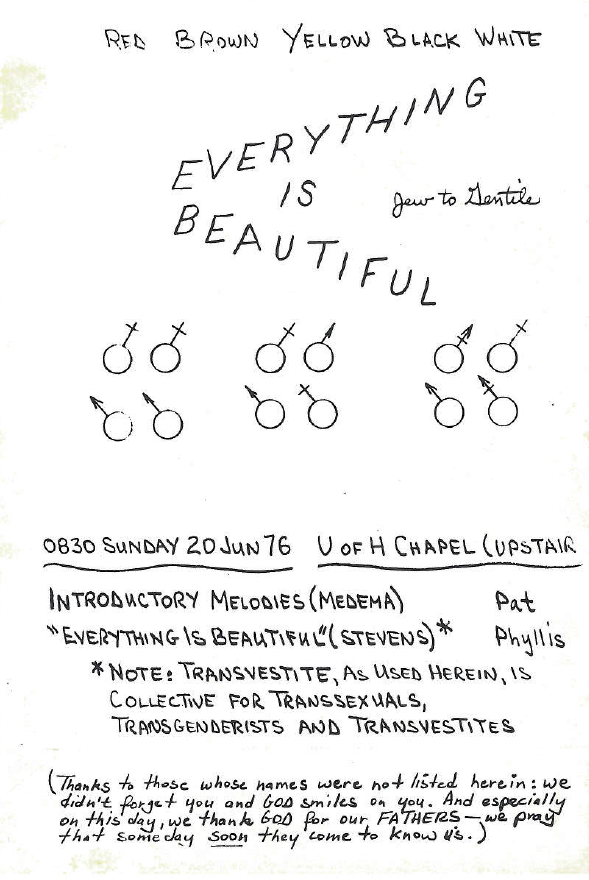 RED BROWN YELLOW BLACK WHITE
EVERYTHING
IS
Jew to Gentile
BEAUTIFUL
0830 SUNDAY 20 JUN 76 U OF H CHAPEL (UPSTAIR
INTRODUCTORY MELODIES (MEDEMA) Pat
"EVERYTHING IS BEAUTIFUL" (STEVENS)* Phyllis
*NOTE: TRANSVESTITE, AS USED HEREIN, IS
COLLECTIVE FOR TRANSSEXUALS,
TRANSGENDERISTS AND TRANSVESTITES
(Thanks to those whose names were not listed herein: we
didn't forget you and GOD smiles on you. And especially
on this day, we thank GOD for our FATHERS—we pray
that someday soon they come to know us.)